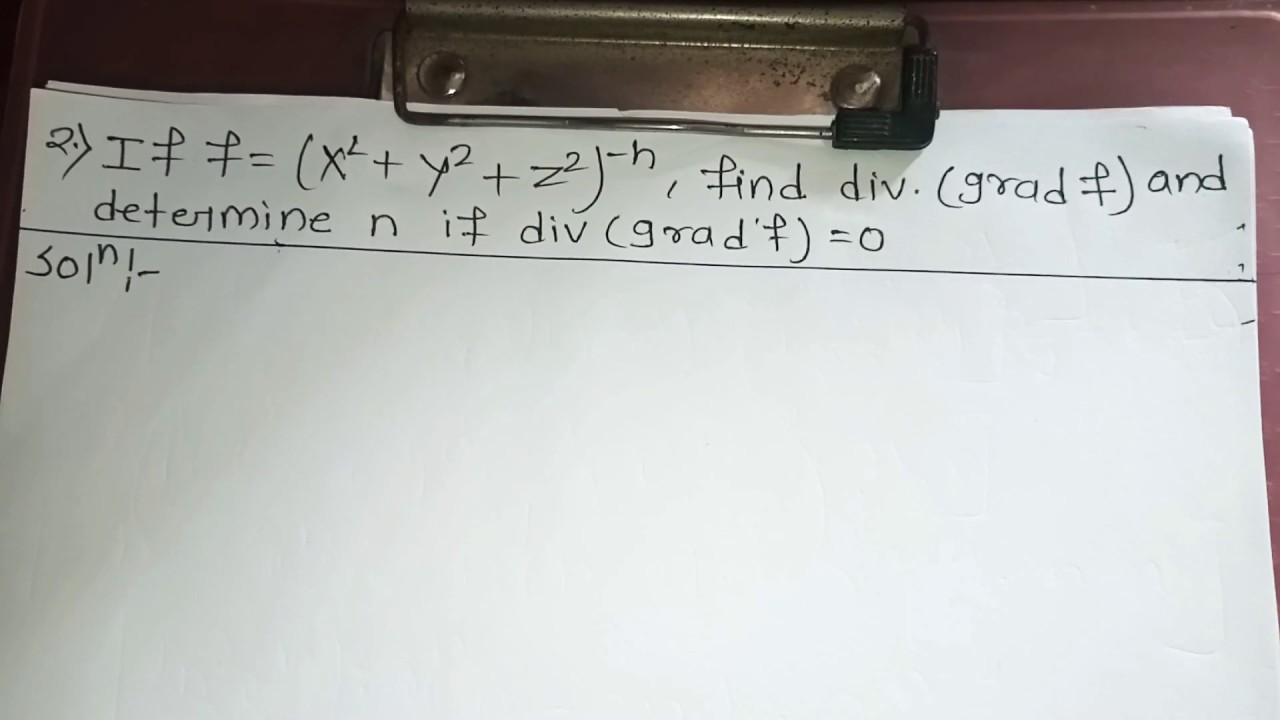 2.) If f = (x² + y² + z²)⁻ⁿ, find div. (grad f) and
determine n if div (grad f) = 0
Solⁿ:-